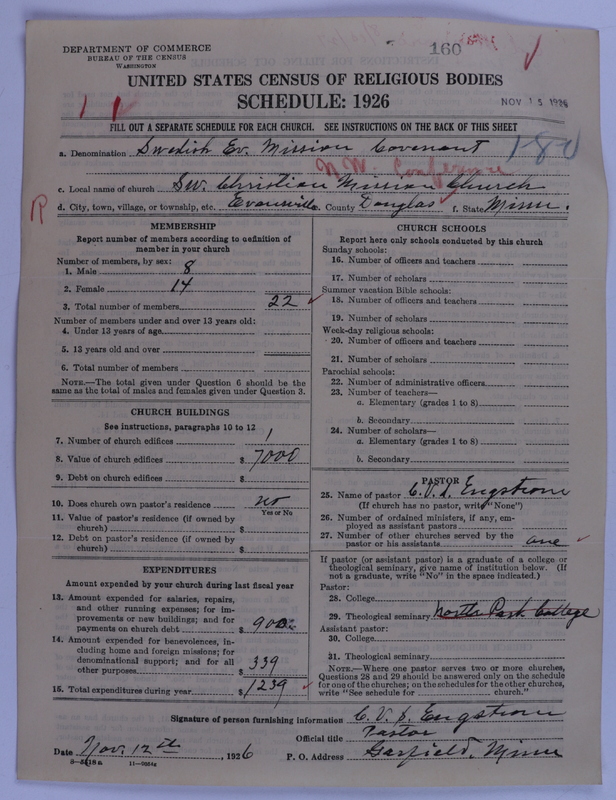 DEPARTMENT OF COMMERCE
BUREAU OF THE CENSUS
WASHINGTON
160
UNITED STATES CENSUS OF RELIGIOUS BODIES
SCHEDULE: 1926
NOV 15 1926
FILL OUT A SEPARATE SCHEDULE FOR EACH CHURCH. SEE INSTRUCTIONS ON THE BACK OF THIS SHEET
a. Denomination Swedish Ev. Mission Covenant
180
N.W. Conference
c. Local name of church Sw. Christian Mission Church
d. City, town, village, or township, etc. Evansville County Douglas f. State Minn.
R
MEMBERSHIP
Report number of members according to definition of
member in your church
Number of members, by sex:
1. Male 8
2. Female 14
3. Total number of members 22
Number of members under and over 13 years old:
4. Under 13 years of age
5. 13 years old and over
6. Total number of members
NOTE.—The total given under Question 6 should be the
same as the total of males and females given under Question 3.
CHURCH BUILDINGS
See instructions, paragraphs 10 to 12
7. Number of church edifices 1
8. Value of church edifices $ 7000
9. Debt on church edifices $
10. Does church own pastor's residence no
Yes or No
11. Value of pastor's residence (if owned by
church) $
12. Debt on pastor's residence (if owned by
church) $
EXPENDITURES
Amount expended by your church during last fiscal year
13. Amount expended for salaries, repairs,
and other running expenses; for im-
provements or new buildings; and for
payments on church debt $ 900
14. Amount expended for benevolences, in-
cluding home and foreign missions; for
denominational support; and for all
other purposes $ 339
15. Total expenditures during year $ 1239
CHURCH SCHOOLS
Report here only schools conducted by this church
Sunday schools:
16. Number of officers and teachers
17. Number of scholars
Summer vacation Bible schools:
18. Number of officers and teachers
19. Number of scholars
Week-day religious schools:
20. Number of officers and teachers
21. Number of scholars
Parochial schools:
22. Number of administrative officers
23. Number of teachers—
a. Elementary (grades 1 to 8)
b. Secondary
24. Number of scholars—
a. Elementary (grades 1 to 8)
b. Secondary
PASTOR
25. Name of pastor C. V. S. Engstrom
(If church has no pastor, write "None")
26. Number of ordained ministers, if any, em-
ployed as assistant pastors
27. Number of other churches served by the
pastor or his assistants one
If pastor (or assistant pastor) is a graduate of a college or
theological seminary, give name of institution below. (If
not a graduate, write "No" in the space indicated.)
Pastor:
28. College
29. Theological seminary North Park College
Assistant pastor:
30. College
31. Theological seminary
NOTE.—Where one pastor serves two or more churches,
Questions 28 and 29 should be answered only on the schedule
for one of the churches; on the schedules for the other churches,
write "See schedule for church."
Signature of person furnishing information C. V. S. Engstrom
Official title Pastor
Date Nov. 12th, 1926 P. O. Address Garfield, Minn
11—9664a